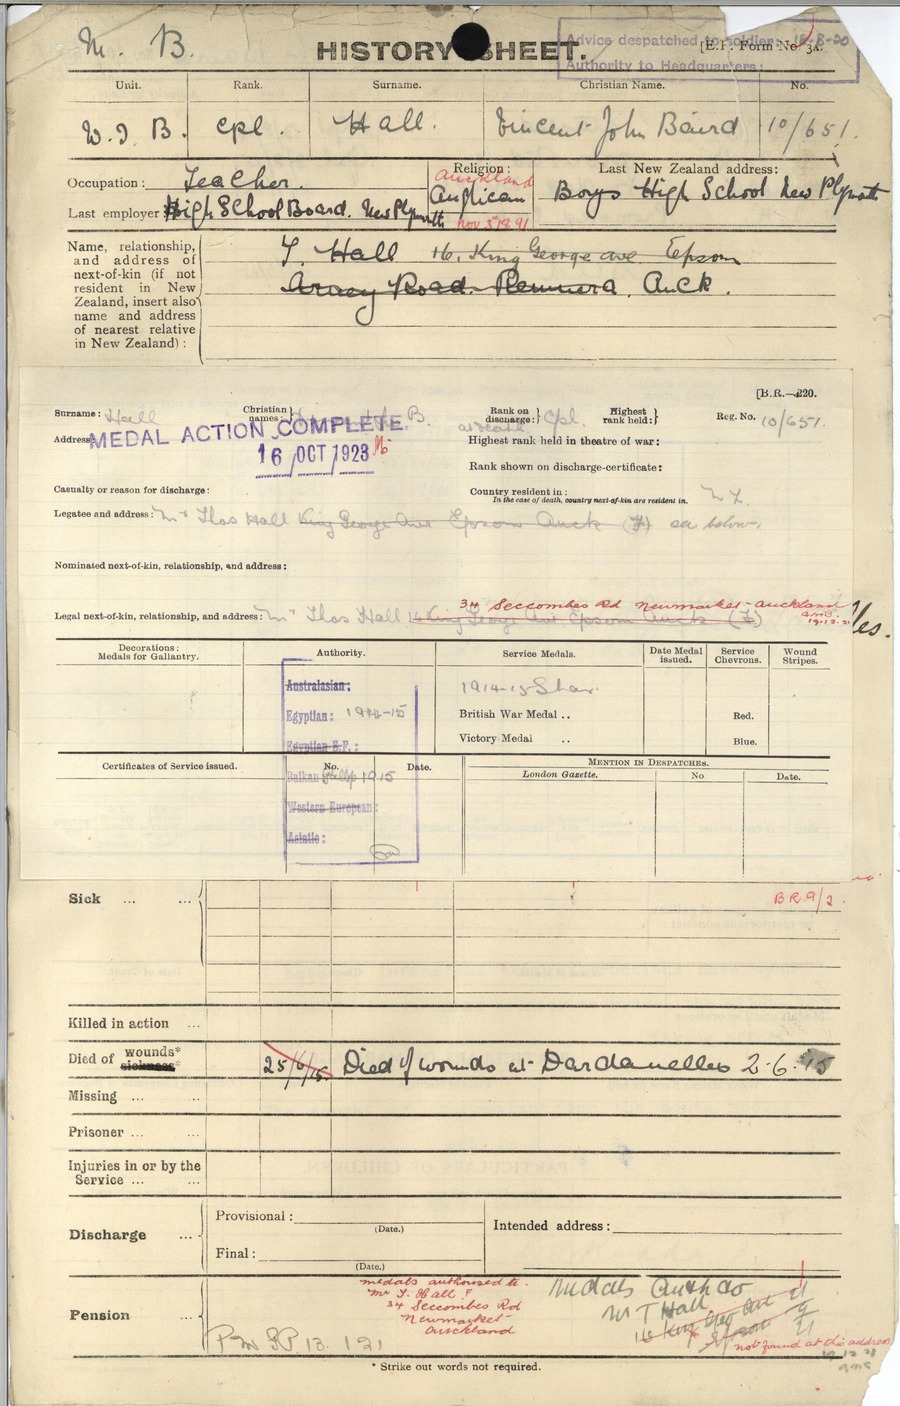 M. B.
HISTORY SHEET.
[E.F. Form No. 3A.
Advice despatched to soldier: 18-8-20
Authority to Headquarters:
Unit. Rank. Surname. Christian Name. No.
W. I. B. Cpl. Hall. Vincent John Baird 10/651.
Occupation: Teacher.
Last employer High School Board. New Plymouth
Religion:
Auckland
Anglican
Nov 3rd 1891
Last New Zealand address:
Boys High School New Plymouth
Name, relationship,
and address of
next-of-kin (if not
resident in New
Zealand, insert also
name and address
of nearest relative
in New Zealand):
T. Hall 16, King George ave Epsom
Arney Road. Remuera. Auck.
[B.R.—220.
Surname: Hall Christian names: B. Rank on discharge: Cpl. Highest rank held: Reg. No. 10/651.
as death
Address MEDAL ACTION COMPLETE
16 OCT 1923
Highest rank held in theatre of war:
Rank shown on discharge-certificate:
Casualty or reason for discharge:
Country resident in: N Z.
In the case of death, country next-of-kin are resident in.
Legatee and address: Mr Thos Hall King George Ave Epsom Auck (F) see below
Nominated next-of-kin, relationship, and address:
34 Seccombes Rd Newmarket - Auckland
19.12.21
Legal next-of-kin, relationship, and address: Mr Thos Hall 16 King George Ave Epsom Auck (F)
les.
Decorations: Medals for Gallantry. Authority. Service Medals. Date Medal issued. Service Chevrons. Wound Stripes.
Australasian: 1914-15 Star.
Egyptian: 1914-15 British War Medal .. Red.
Egyptian E.F.: Victory Medal .. Blue.
Certificates of Service issued. No. Date. MENTION IN DESPATCHES.
London Gazette. No. Date.
Balkan 1915
Western European:
Asiatic:
Sick ... ...
B R 9/2
Killed in action ...
Died of wounds* sickness* 25/6/15. Died of wounds at Dardanelles 2.6.15
Missing ... ...
Prisoner ... ...
Injuries in or by the
Service ... ...
Discharge ...
Provisional: (Date.) Intended address:
Final: (Date.)
Pension ...
Medals authorised to
Mr T. Hall F
34 Seccombes Rd
Newmarket-
Auckland
Medals Auth to
Mr T Hall
16 King Geo Ave
Epsom
not found at this address
19 12 21
* Strike out words not required.